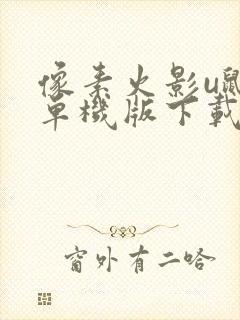 像素火影u鼠
單機版下載
窗外有二哈